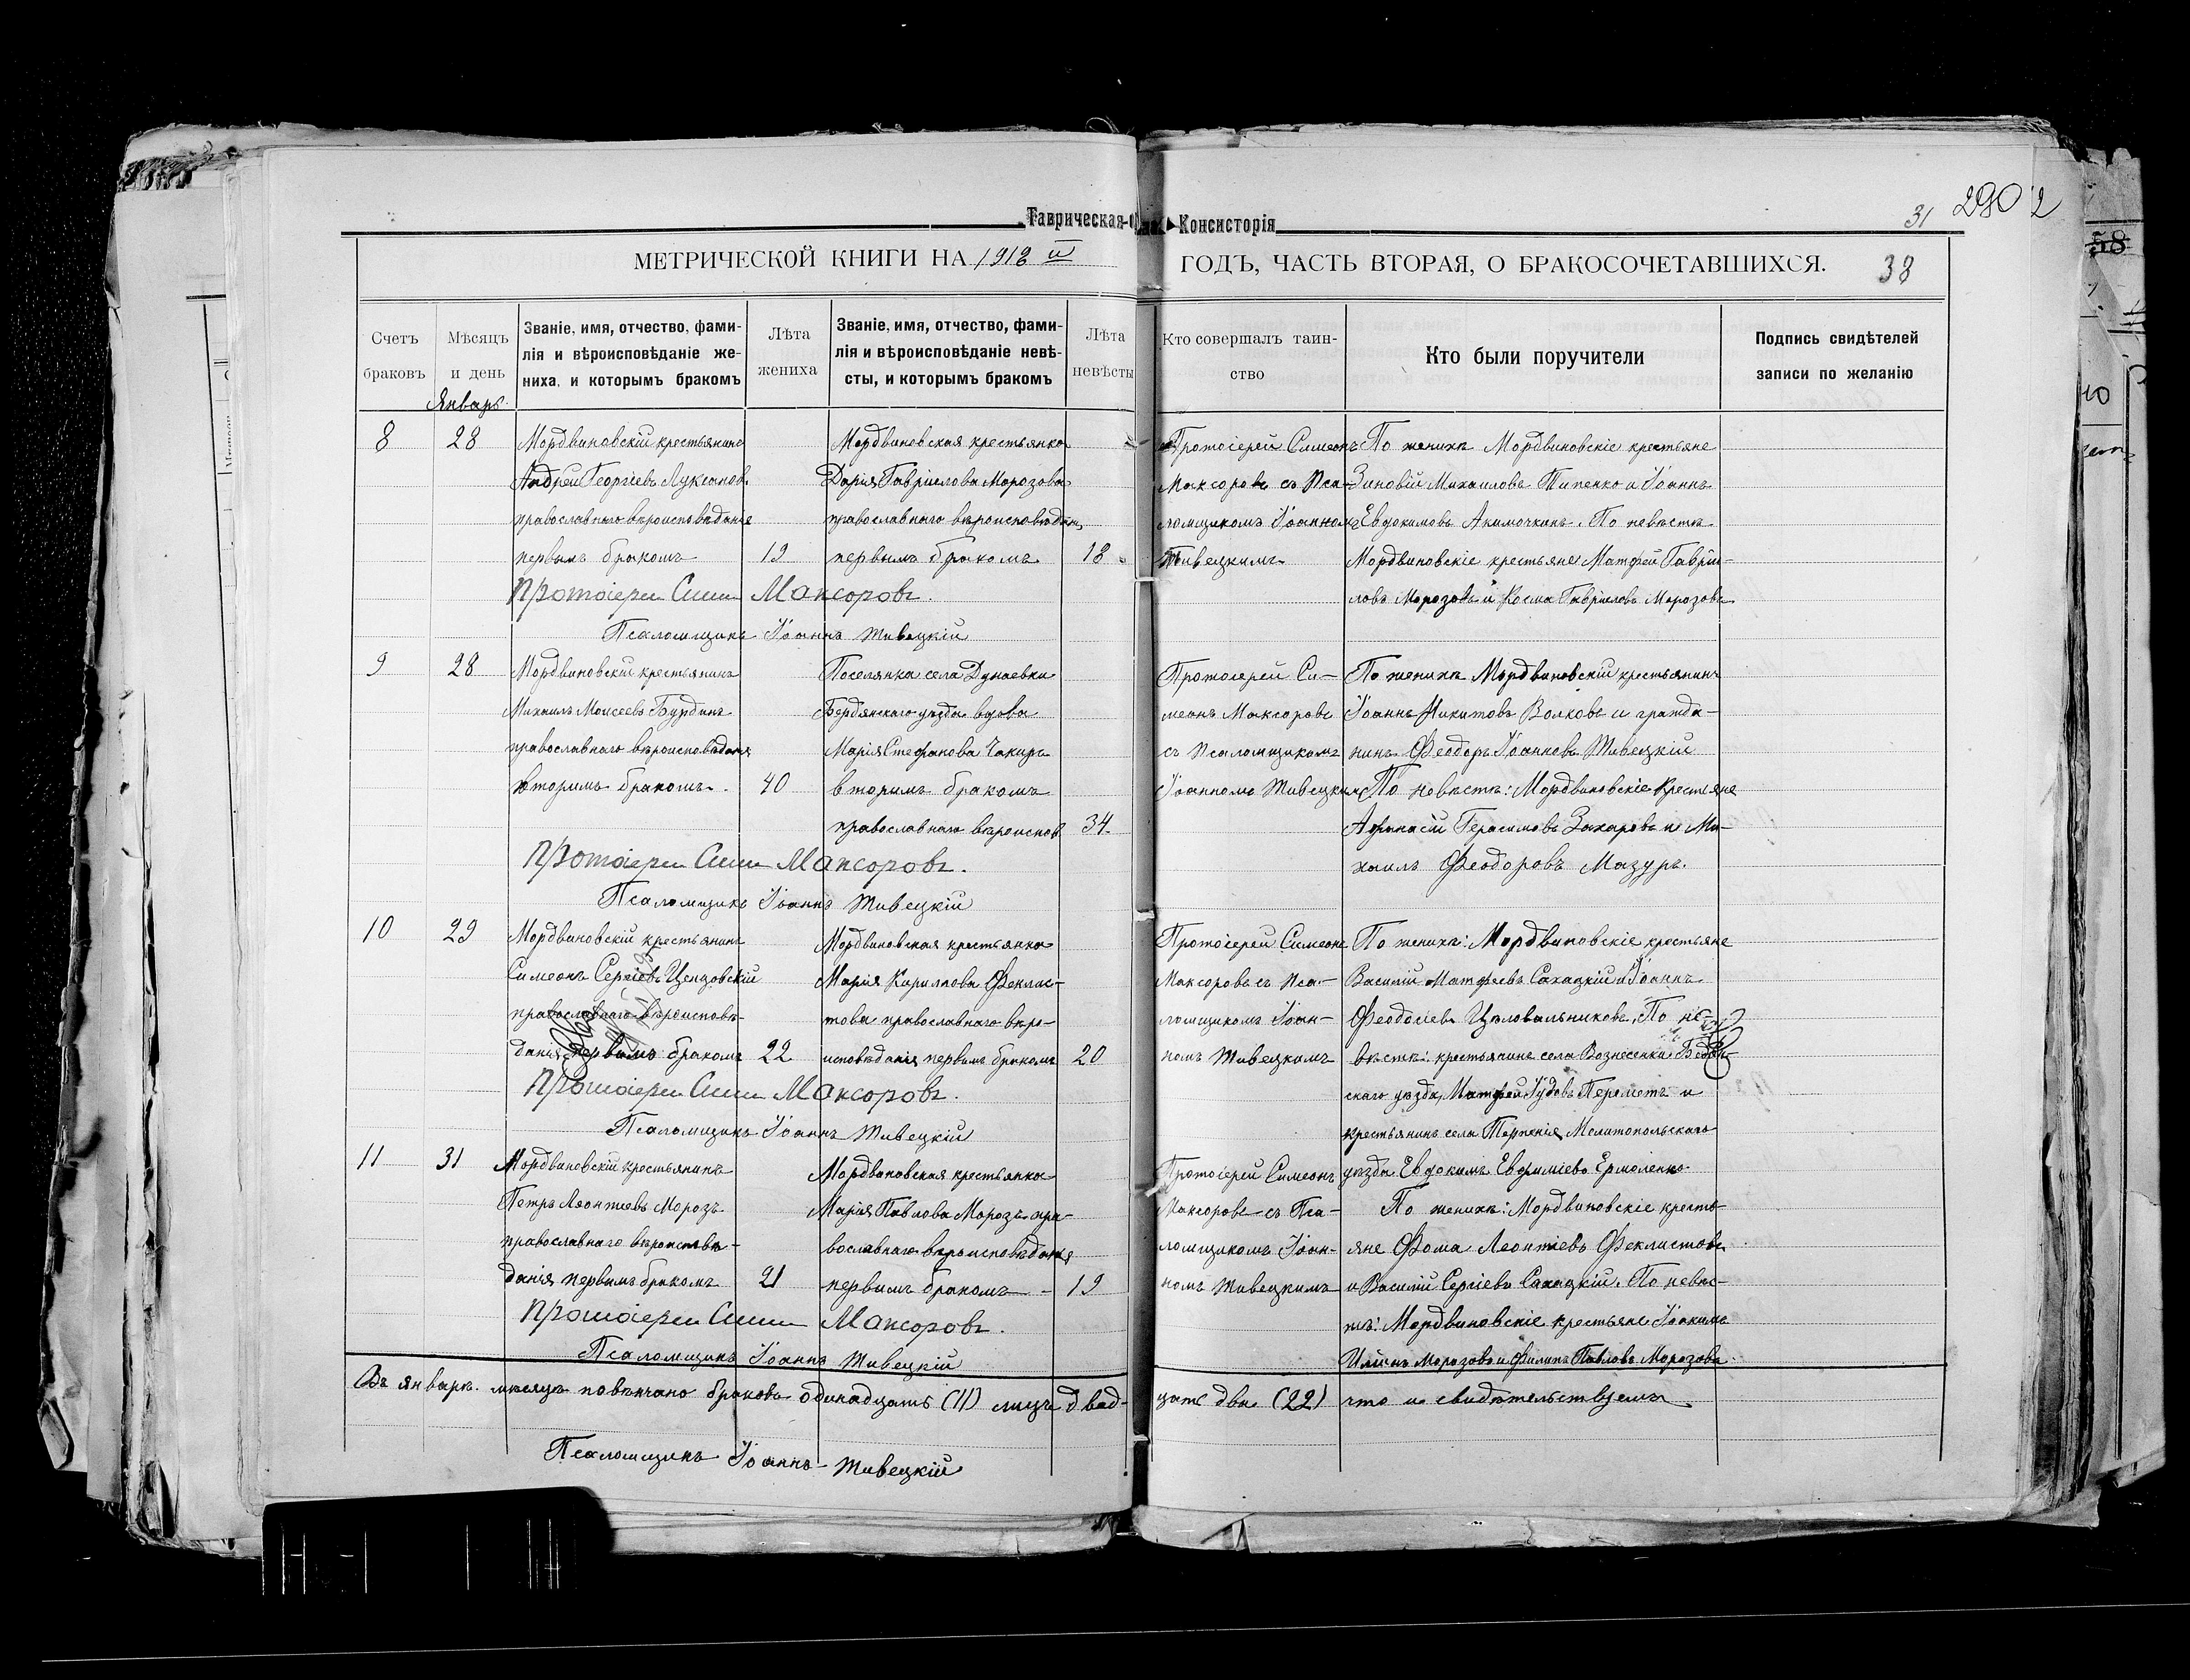 Таврическая Консисторія
31 290 2
МЕТРИЧЕСКОЙ КНИГИ НА 1918 й ГОДЪ, ЧАСТЬ ВТОРАЯ, О БРАКОСОЧЕТАВШИХСЯ. 38
58
Счетъ браковъ
Мѣсяцъ и день
Званіе, имя, отчество, фами-
лія и вѣроисповѣданіе же-
ниха, и которымъ бракомъ
Лѣта жениха
Званіе, имя, отчество, фами-
лія и вѣроисповѣданіе невѣ-
сты, и которымъ бракомъ
Лѣта невѣсты
Кто совершалъ таин-
ство
Кто были поручители
Подпись свидѣтелей
записи по желанію
Январь.
8
28
Мордвиновскій крестьянинъ
Андрей Георгіевъ
православнаго вѣроисповѣданія
первымъ бракомъ
19
Мордвиновская крестьянка
Дарія Гавріилова Морозова
православнаго вѣроисповѣданія
первымъ бракомъ
18
Протоіерей Симеонъ
Максоровъ съ Пса-
ломщикомъ Іоанномъ
Живецкимъ
По женихѣ Мордвиновскіе крестьяне
Зиновій Михаиловъ и Іоаннъ
Евдокимовъ Акимочкинъ. По невѣстѣ
Мордвиновскіе крестьяне Матфей Гавріи-
ловъ Морозовъ и Косма Гавріиловъ Морозовъ
Протоіерей Симеонъ Максоровъ.
Псаломщикъ Іоаннъ Живецкій
9
28
Мордвиновскій крестьянинъ
Михаилъ Моисеевъ Бурдинъ
православнаго вѣроисповѣданія
вторымъ бракомъ.
40
Поселянка села Дунаевки
Бердянскаго уѣзда вдова
Марія Стефанова Чакиръ
вторымъ бракомъ
православнаго вѣроиспов.
34.
Протоіерей Си-
меонъ Максоровъ
съ Псаломщикомъ
Іоанномъ Живецкимъ
По женихѣ Мордвиновскій крестьянинъ
Іоаннъ Никитовъ Волковъ и гражда-
нинъ Феодоръ Іоанновъ Живецкій
По невѣстѣ: Мордвиновскіе крестьяне
Афанасій Герасимовъ Захаровъ и Ми-
хаилъ Феодоровъ Мазуръ.
Протоіерей Симеонъ Максоровъ.
Псаломщикъ Іоаннъ Живецкій
10
29
Мордвиновскій крестьянинъ
Симеонъ Сергіевъ
православнаго вѣроисповѣ-
данія первымъ бракомъ
22
Мордвиновская крестьянка
Марія Кириллова Феклис-
това православнаго вѣро-
исповѣданія первымъ бракомъ
20
Протоіерей Симеонъ
Максоровъ съ Пса-
ломщикомъ Іоан-
номъ Живецкимъ
По женихѣ: Мордвиновскіе крестьяне
Василій Матфеевъ Сахацкій и Іоаннъ
Феодосіевъ Цѣловальниковъ, По не-
вѣстѣ: крестьянинъ села Вознесенки
скаго уѣзда, Матфей Іудовъ Переметъ и
крестьянинъ села Терпенія, Мелитопольскаго
уѣзда Евдокимъ Евфиміевъ Ермоленко
Протоіерей Симеонъ Максоровъ.
Псаломщикъ Іоаннъ Живецкій
11
31
Мордвиновскій крестьянинъ
Петръ Леонтіевъ Морозъ
православнаго вѣроисповѣ-
данія первымъ бракомъ
21
Мордвиновская крестьянка
Марія Павлова Морозъ пра-
вославнаго вѣроисповѣданія
первымъ бракомъ
19
Протоіерей Симеонъ
Максоровъ съ Пса-
ломщикомъ Іоан-
номъ Живецкимъ
По женихѣ: Мордвиновскіе кресть-
яне Фома Леонтіевъ Феклистовъ
и Василій Сергіевъ Сахацкій. По невѣс-
тѣ: Мордвиновскіе крестьяне Іоакимъ
Ильинъ Морозовъ и Филипъ Павловъ Морозовъ.
Протоіерей Симеонъ Максоровъ.
Псаломщикъ Іоаннъ Живецкій
Въ январѣ мѣсяцѣ повѣнчано браковъ одинадцать (11) лицъ двад-
цать два (22) что и свидѣтельствуемъ
Псаломщикъ Іоаннъ Живецкій